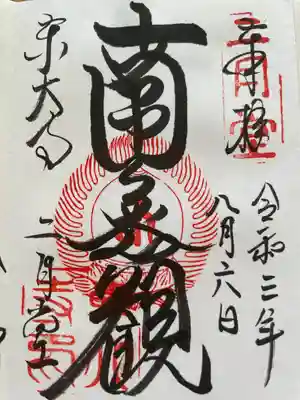 奉拝
令和三年
八月六日
南無観
東大寺
二月堂